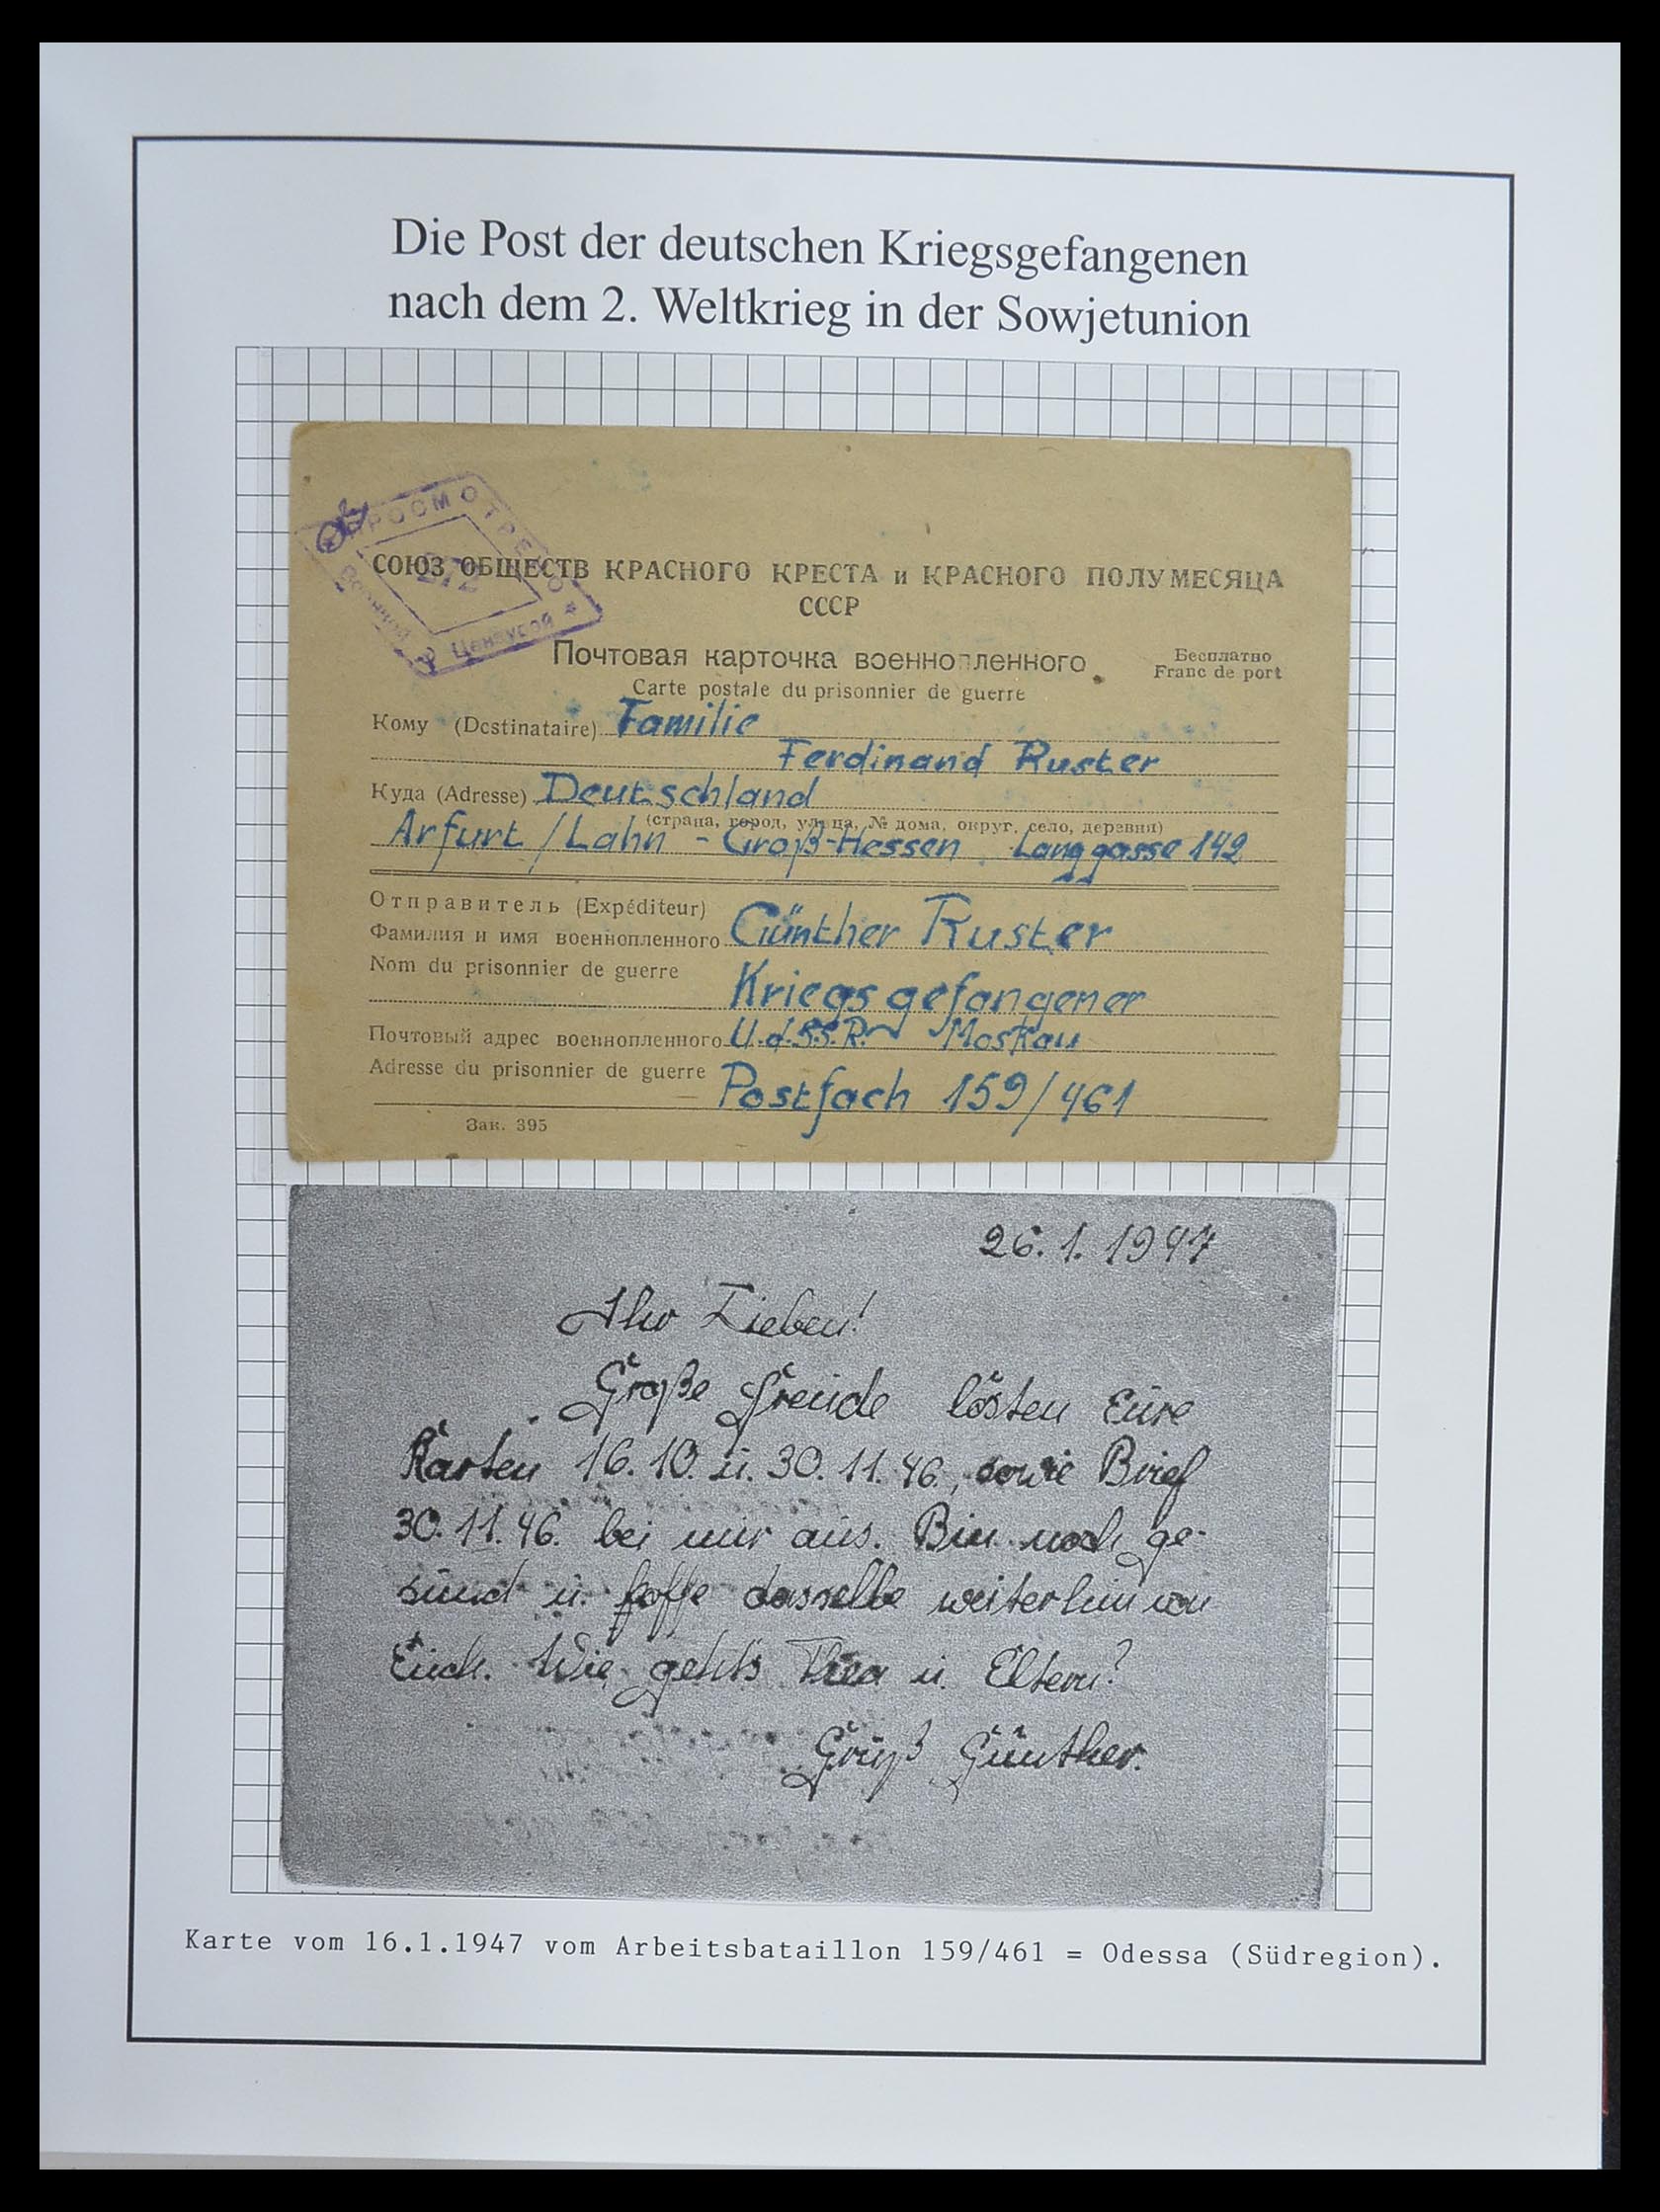 Die Post der deutschen Kriegsgefangenen
nach dem 2. Weltkrieg in der Sowjetunion
ПРОСМОТРЕНО
Военной Цензурой
СОЮЗ ОБЩЕСТВ КРАСНОГО КРЕСТА и КРАСНОГО ПОЛУМЕСЯЦА
СССР
Почтовая карточка военнопленного
Бесплатно
Franc de port
Carte postale du prisonnier de guerre
Кому (Destinataire) Familie
Ferdinand Ruster
Куда (Adresse) Deutschland
(страна, город, улица, № дома, округ, село, деревня)
Arfurt / Lahn - Groß-Hessen Langgasse 142
Отправитель (Expéditeur)
Фамилия и имя военнопленного Günther Ruster
Nom du prisonnier de guerre
Kriegsgefangener
Почтовый адрес военнопленного U.d.S.S.R. Moskau
Adresse du prisonnier de guerre Postfach 159/461
Зак. 395
26.1.1947
Ihr Lieben!
Große Freude lösten Eure
Karten 16.10. u. 30.11.46., sowie Brief
30.11.46. bei mir aus. Bin noch ge-
sund u. hoffe dasselbe weiterhin von
Euch. Wie geht's Thea u. Eltern?
Gruß Günther.
Karte vom 16.1.1947 vom Arbeitsbataillon 159/461 = Odessa (Südregion).